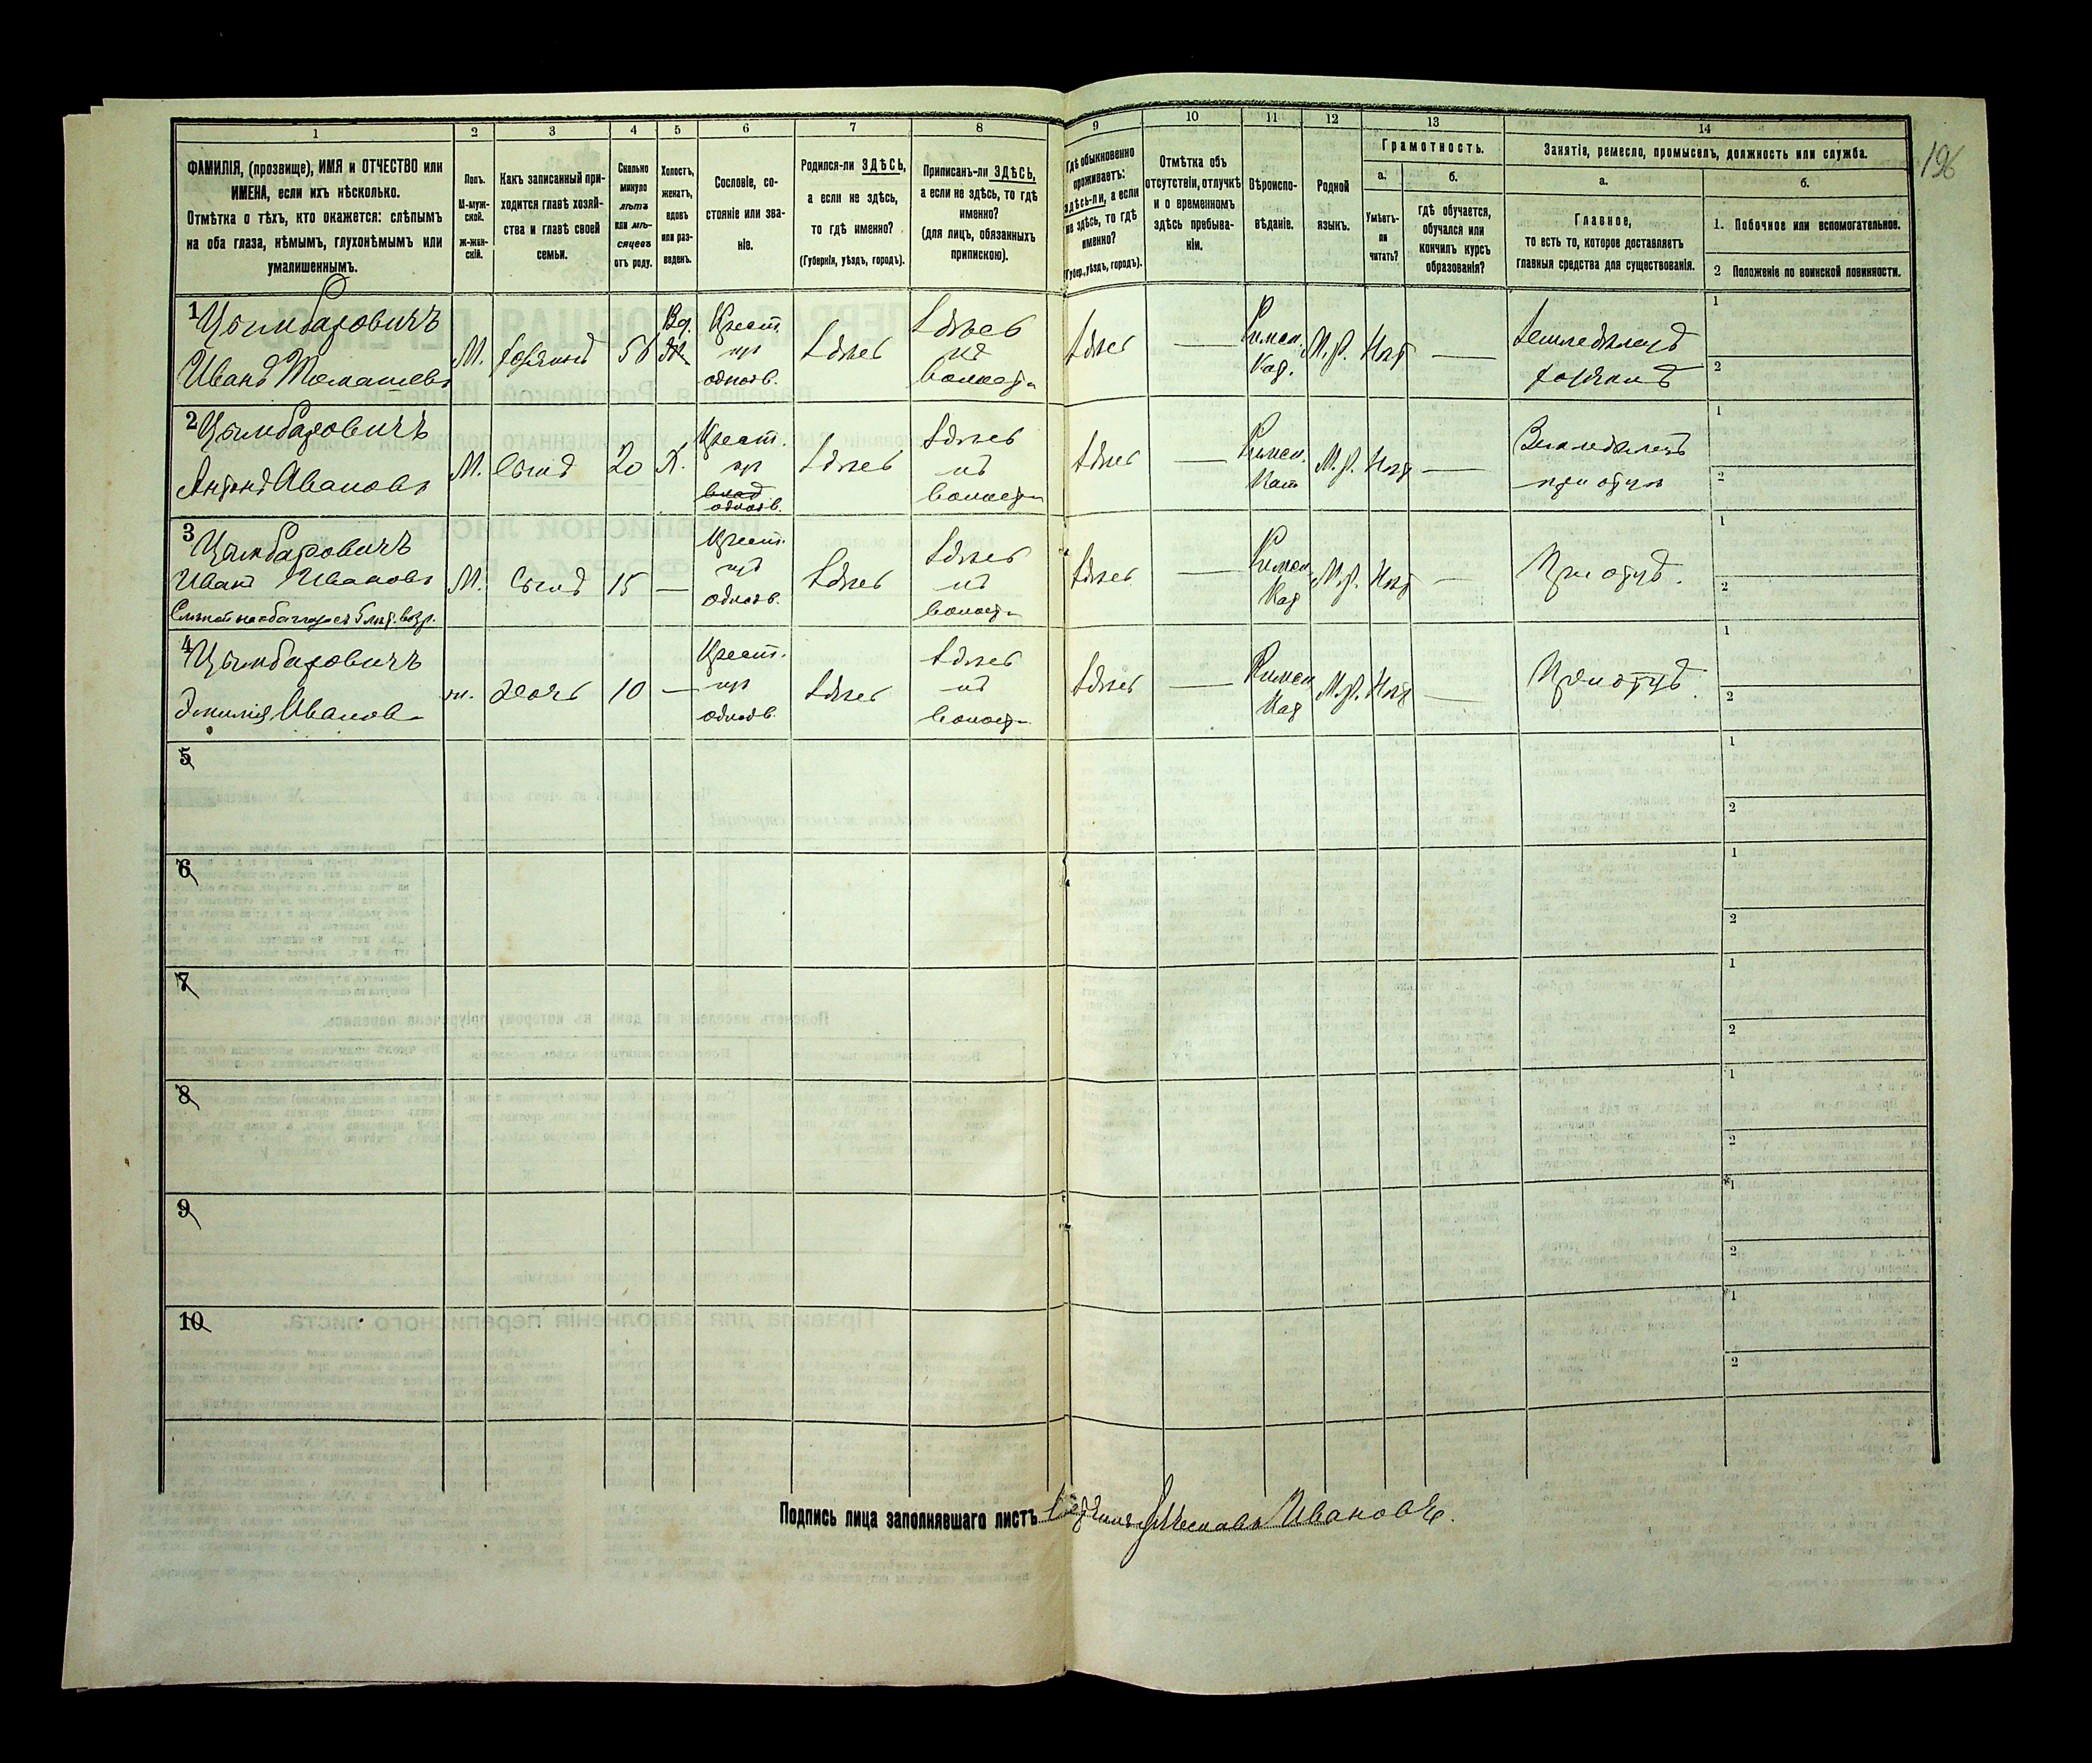 1 2 3 4 5 6 7 8 9 10 11 12 13 14
ФАМИЛІЯ, (прозвище), ИМЯ и ОТЧЕСТВО или
ИМЕНА, если ихъ нѣсколько.
Отмѣтка о тѣхъ, кто окажется: слѣпымъ
на оба глаза, нѣмымъ, глухонѣмымъ или
умалишеннымъ.
Полъ.
М-муж-
ской.
ж-жен-
скій.
Какъ записанный при-
ходится главѣ хозяй-
ства и главѣ своей
семьи.
Сколько
минуло
лѣтъ
или мѣ-
сяцевъ
отъ роду.
Холостъ,
женатъ,
вдовъ
или раз-
веденъ.
Сословіе, со-
стояніе или зва-
ніе.
Родился-ли ЗДѢСЬ,
а если не здѣсь,
то гдѣ именно?
(Губернія, уѣздъ, городъ).
Приписанъ-ли ЗДѢСЬ,
а если не здѣсь, то гдѣ
именно?
(для лицъ, обязанныхъ
припискою).
Гдѣ обыкновенно
проживаетъ:
здѣсь-ли, а если
не здѣсь, то гдѣ
именно?
(Губер., уѣздъ, городъ).
Отмѣтка объ
отсутствіи, отлучкѣ
и о временномъ
здѣсь пребыва-
ніи.
Вѣроиспо-
вѣданіе.
Родной
языкъ.
Грамотность.
а.
Умѣетъ-
ли
читать?
б.
гдѣ обучается,
обучался или
кончилъ курсъ
образованія?
Занятія, ремесло, промыселъ, должность или служба.
а.
Главное,
то есть то, которое доставляетъ
главныя средства для существованія.
б.
1. Побочное или вспомогательное.
2 Положеніе по воинской повинности.
196
1 Цимбаровичъ
Иванъ Томашевъ
М.
хозяинъ
56
Вд.
Крест.
одноdв.
Здѣсь
Здѣсь
въ
волости
Здѣсь
—
Римск.
Кат.
Нѣт
—
Земледѣлецъ
хозяинъ
1
2
2 Цимбаровичъ
Антонъ Ивановъ
М.
Сынъ
20
Х.
Крест.
Здѣсь
Здѣсь
волости
Здѣсь
—
Римск.
Кат
Нѣт
—
Земледѣлецъ
при отцѣ
1
2
3 Цимбаровичъ
Иванъ Ивановъ
М.
Сынъ
15
—
Крест.
Здѣсь
Здѣсь
волости
Здѣсь
—
Римск.
Кат
Нѣт
—
При отцѣ.
1
2
4 Цимбаровичъ
Эмилія Иванов
ж.
дочь
10
—
Крест.
Здѣсь
Здѣсь
волости
Здѣсь
—
Римск
Кат
Нѣт
—
При отцѣ.
1
2
5
1
2
6
1
2
7
1
2
8
1
2
9
1
2
10
1
2
Подпись лица заполнявшаго листъ